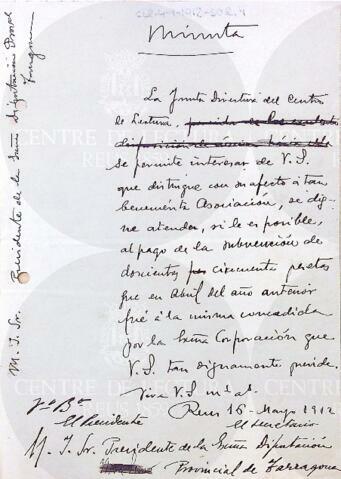 Minuta
La Junta Directiva del Centro
de Lectura,
se permite interesar de V. S.
que distingue con su afecto á tan
benemérita Asociación, se dig-
ne atender, si le es posible,
al pago de la subvención de
doscientas cincuenta pesetas
que en Abril del año anterior
fué á la misma concedida
por la Exma Corporación que
V. S. tan dignamente preside.
Viva V. S. ms. as.
Reus 16 - Mayo 1912
Vº Bº
El Presidente
El Secretario
M. I. Sr. Presidente de la Exma Diputación
Provincial de Tarragona
M. I. Sr. Presidente de la Exma Diputación Provl
Tarragona
CENTRE DE LECTURA
REUS 1859
CENTRE DE LECTURA
REUS 1859